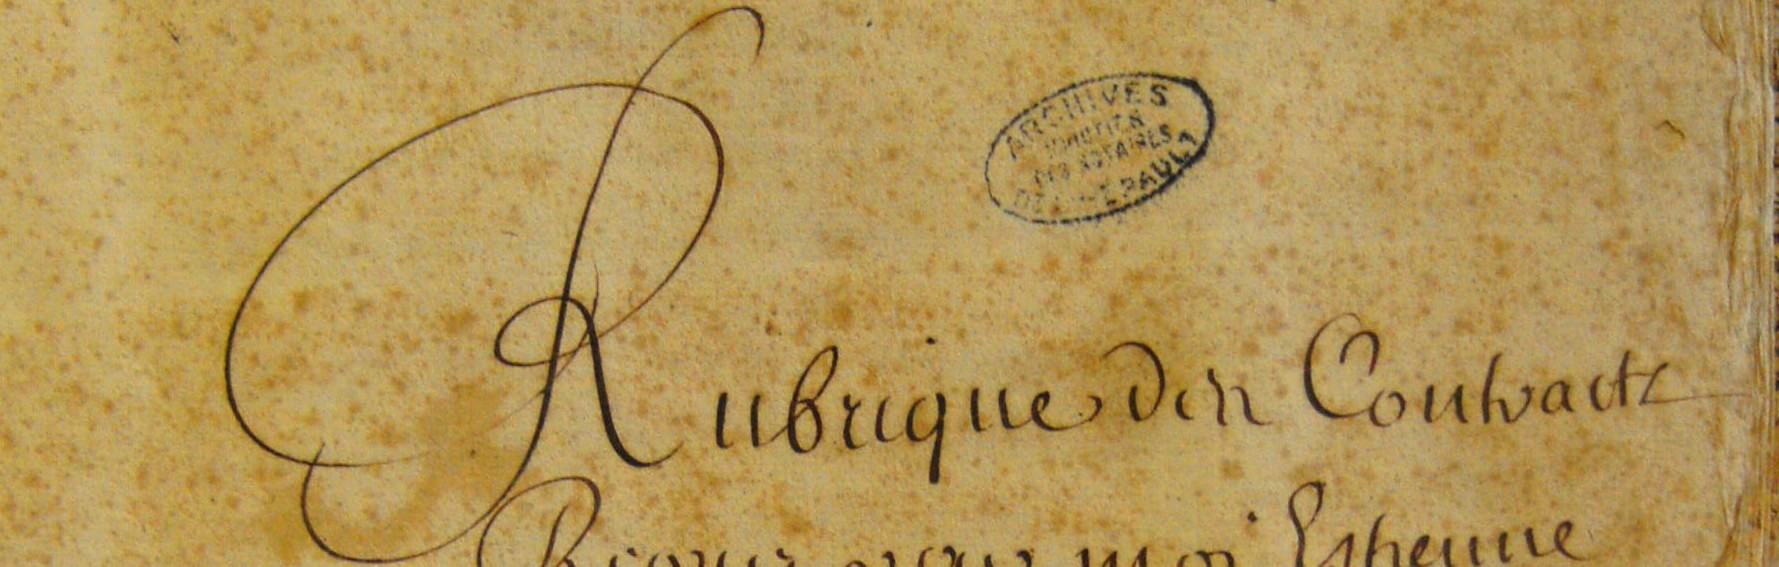 ARCHIVES
DES NOTAIRES
Rubrique des Contractz
moi Estienne